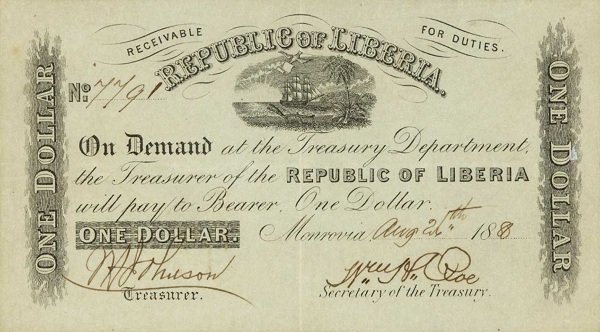 RECEIVABLE FOR DUTIES.
REPUBLIC OF LIBERIA.
No. 7791
On Demand at the Treasury Department,
the Treasurer of the REPUBLIC OF LIBERIA
will pay to Bearer, One Dollar.
ONE DOLLAR. Monrovia, Aug 26th 188
Johnson
Treasurer.
Roe
Secretary of the Treasury.
ONE DOLLAR
ONE DOLLAR